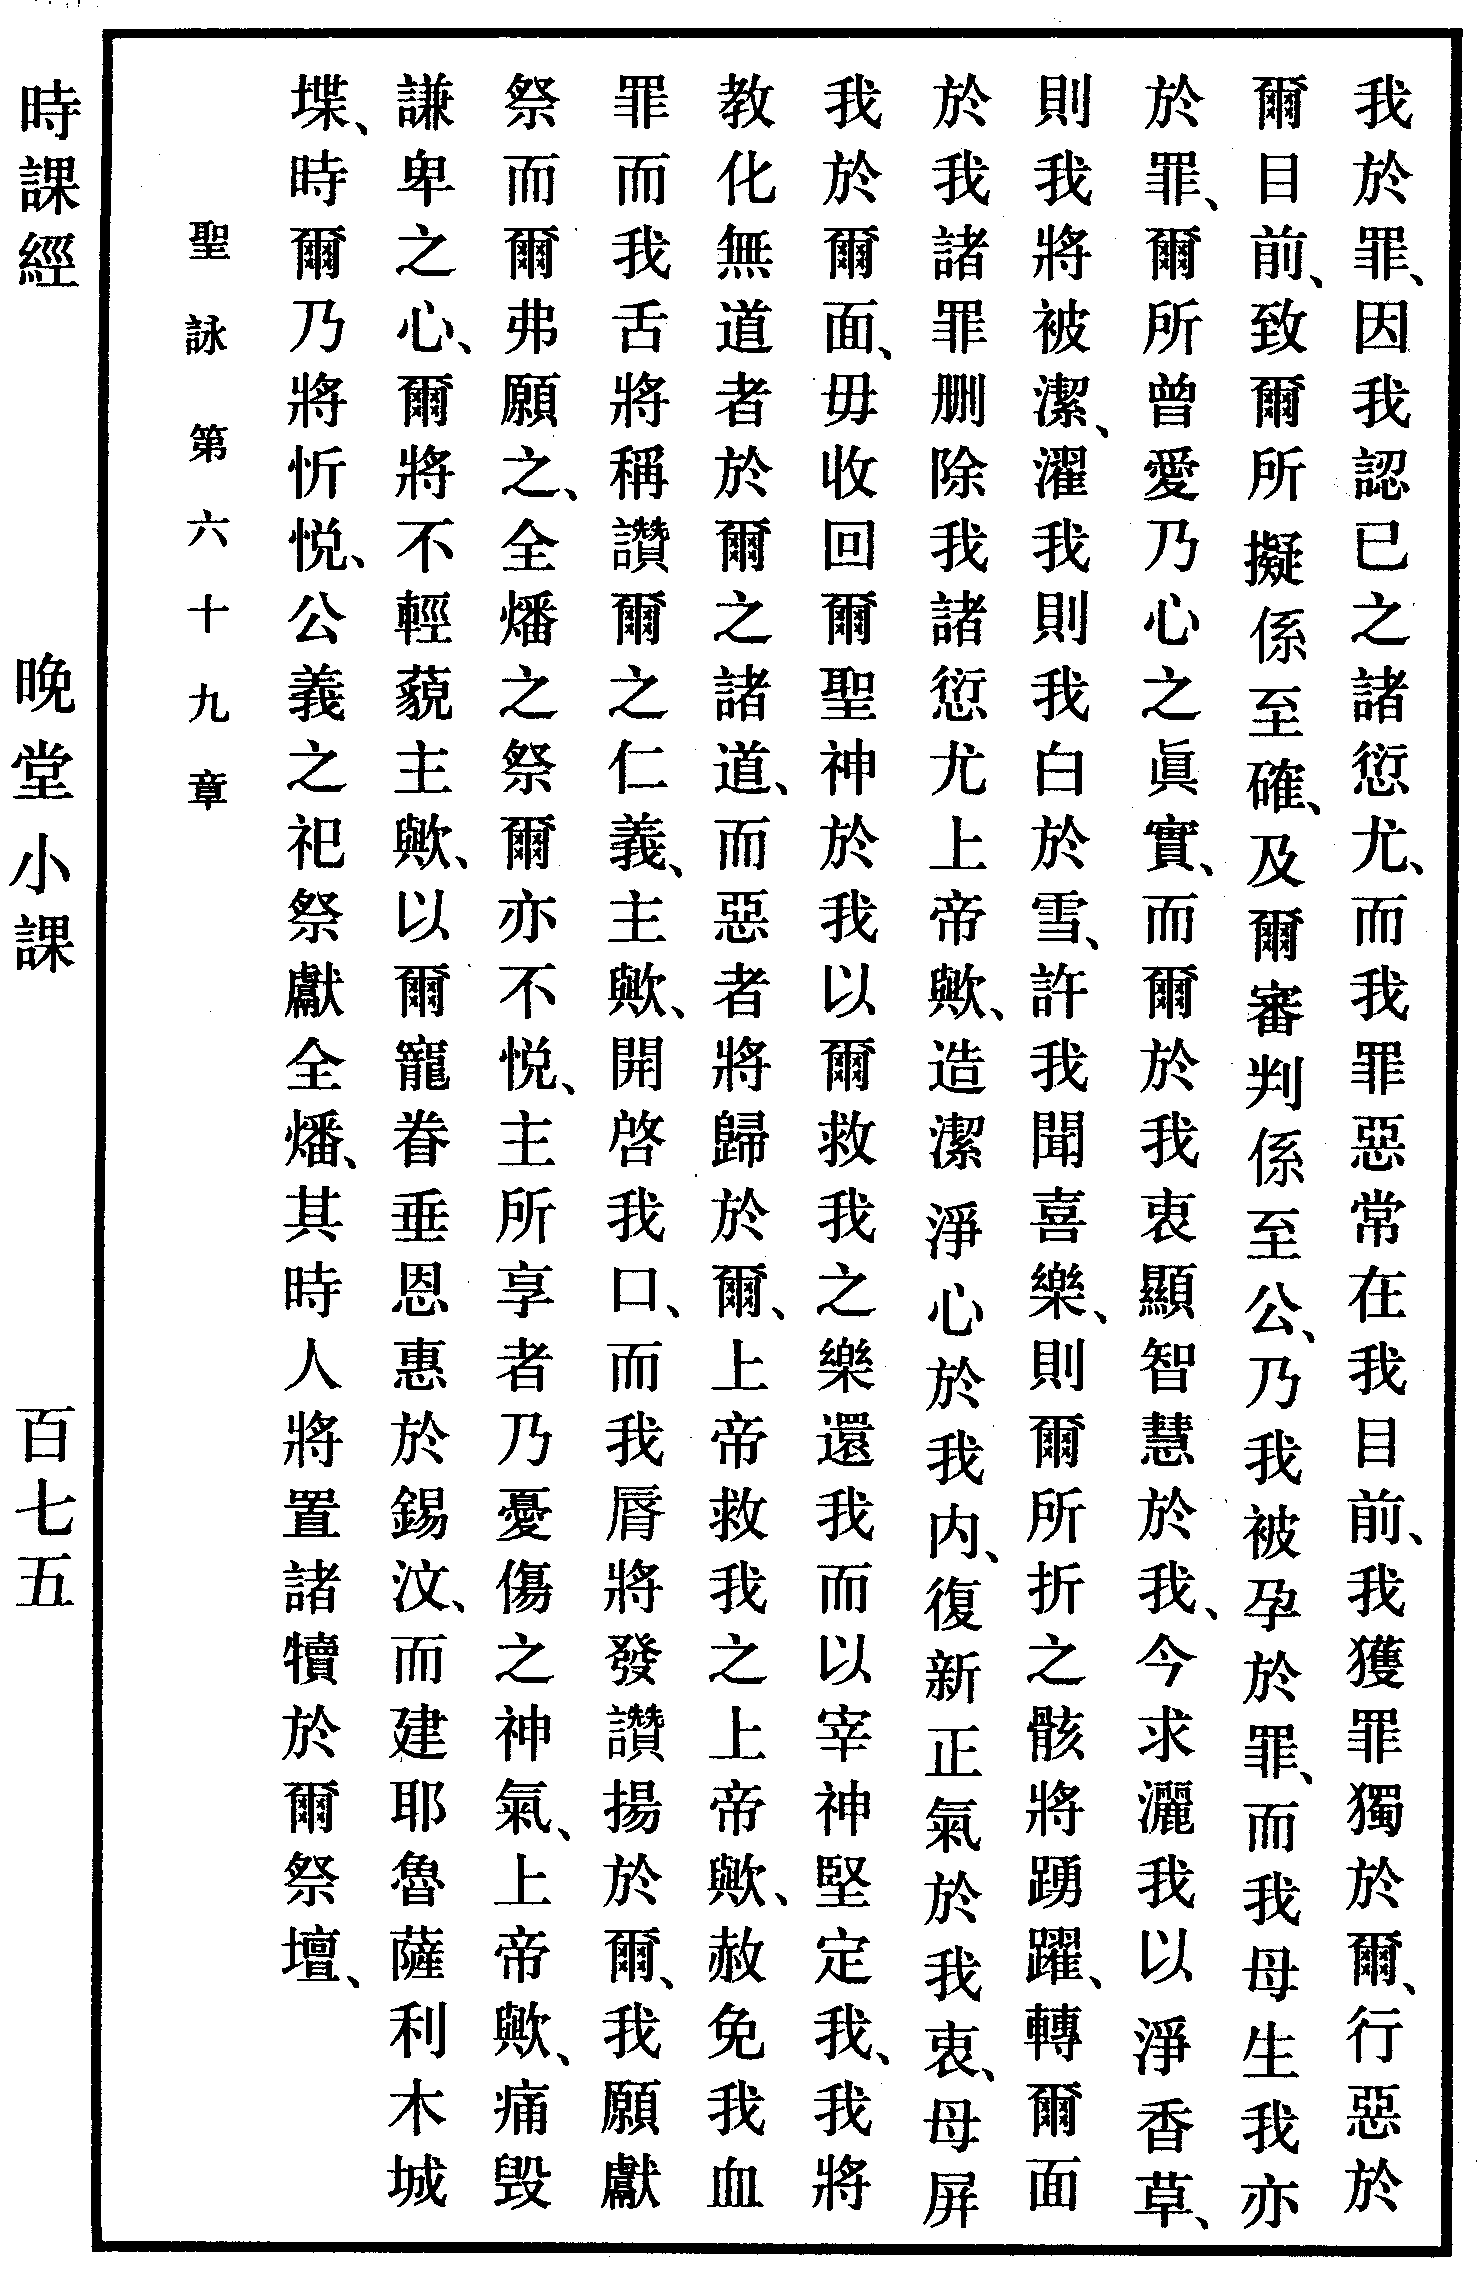 我於罪、因我認已之諸愆尤、而我罪惡常在我目前、我獲罪獨於爾、行惡於
爾目前、致爾所擬係至確、及爾審判係至公、乃我被孕於罪、而我母生我亦
於罪、爾所曾愛乃心之眞實、而爾於我衷顯智慧於我、今求灑我以淨香草、
則我將被潔、濯我則我白於雪、許我聞喜樂、則爾所折之骸將踴躍、轉爾面
於我諸罪刪除我諸愆尤上帝歟、造潔淨心於我內、復新正氣於我衷、母屏
我於爾面、毋收回爾聖神於我以爾救我之樂還我而以宰神堅定我、我將
教化無道者於爾之諸道、而惡者將歸於爾、上帝救我之上帝歟、赦免我血
罪而我舌將稱讚爾之仁義、主歟、開啓我口、而我脣將發讚揚於爾、我願獻
祭而爾弗願之、全燔之祭爾亦不悅、主所享者乃憂傷之神氣、上帝歟、痛毀
謙卑之心、爾將不輕藐主歟、以爾寵眷垂恩惠於錫汶、而建耶魯薩利木城
堞、時爾乃將忻悅、公義之祀祭獻全燔、其時人將置諸犢於爾祭壇、
聖詠第六十九章
時課經 晚堂小課 百七五